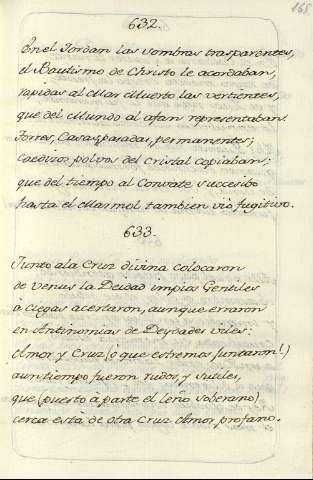 168
632.
En el Jordan las sombras trasparentes,
el Bautismo de Christo le acordaban,
rapidas al Mar Muerto las vertientes,
que del Mundo al afan representaban
Torres, Casas, paradas, permanentes;
Caedizos polvos del Cristal copiaban;
que del tiempo al Convate succesibo
hasta el Marmol tambien vio fugitivo.
633.
Junto a la Cruz divina colocaron
de Venus la Deidad impios Gentiles
à ciegas acertaron, aunque erraron
en Antinomias de Deydades viles:
Amor, y Cruz (ò que estremos juntaron!)
aun tiempo fueron rudos, y sutiles,
que (puesto à parte el leño soberano)
cerca està de otra Cruz Amor profano.